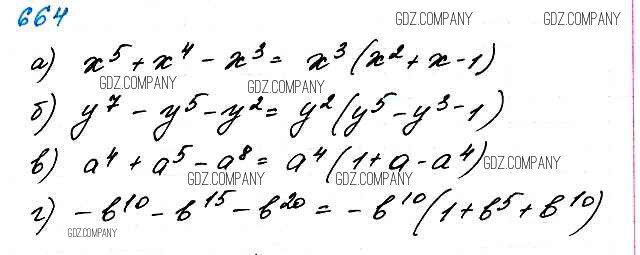 664 GDZ.COMPANY GDZ.COMPANY
а) x⁵ + x⁴ - x³ = x³(x² + x - 1)
GDZ.COMPANY GDZ.COMPANY
б) y⁷ - y⁵ - y² = y²(y⁵ - y³ - 1)
в) a⁴ + a⁵ - a⁸ = a⁴(1 + a - a⁴) GDZ.COMPANY
GDZ.COMPANY GDZ.COMPANY
г) -b¹⁰ - b¹⁵ - b²⁰ = -b¹⁰(1 + b⁵ + b¹⁰)
GDZ.COMPANY